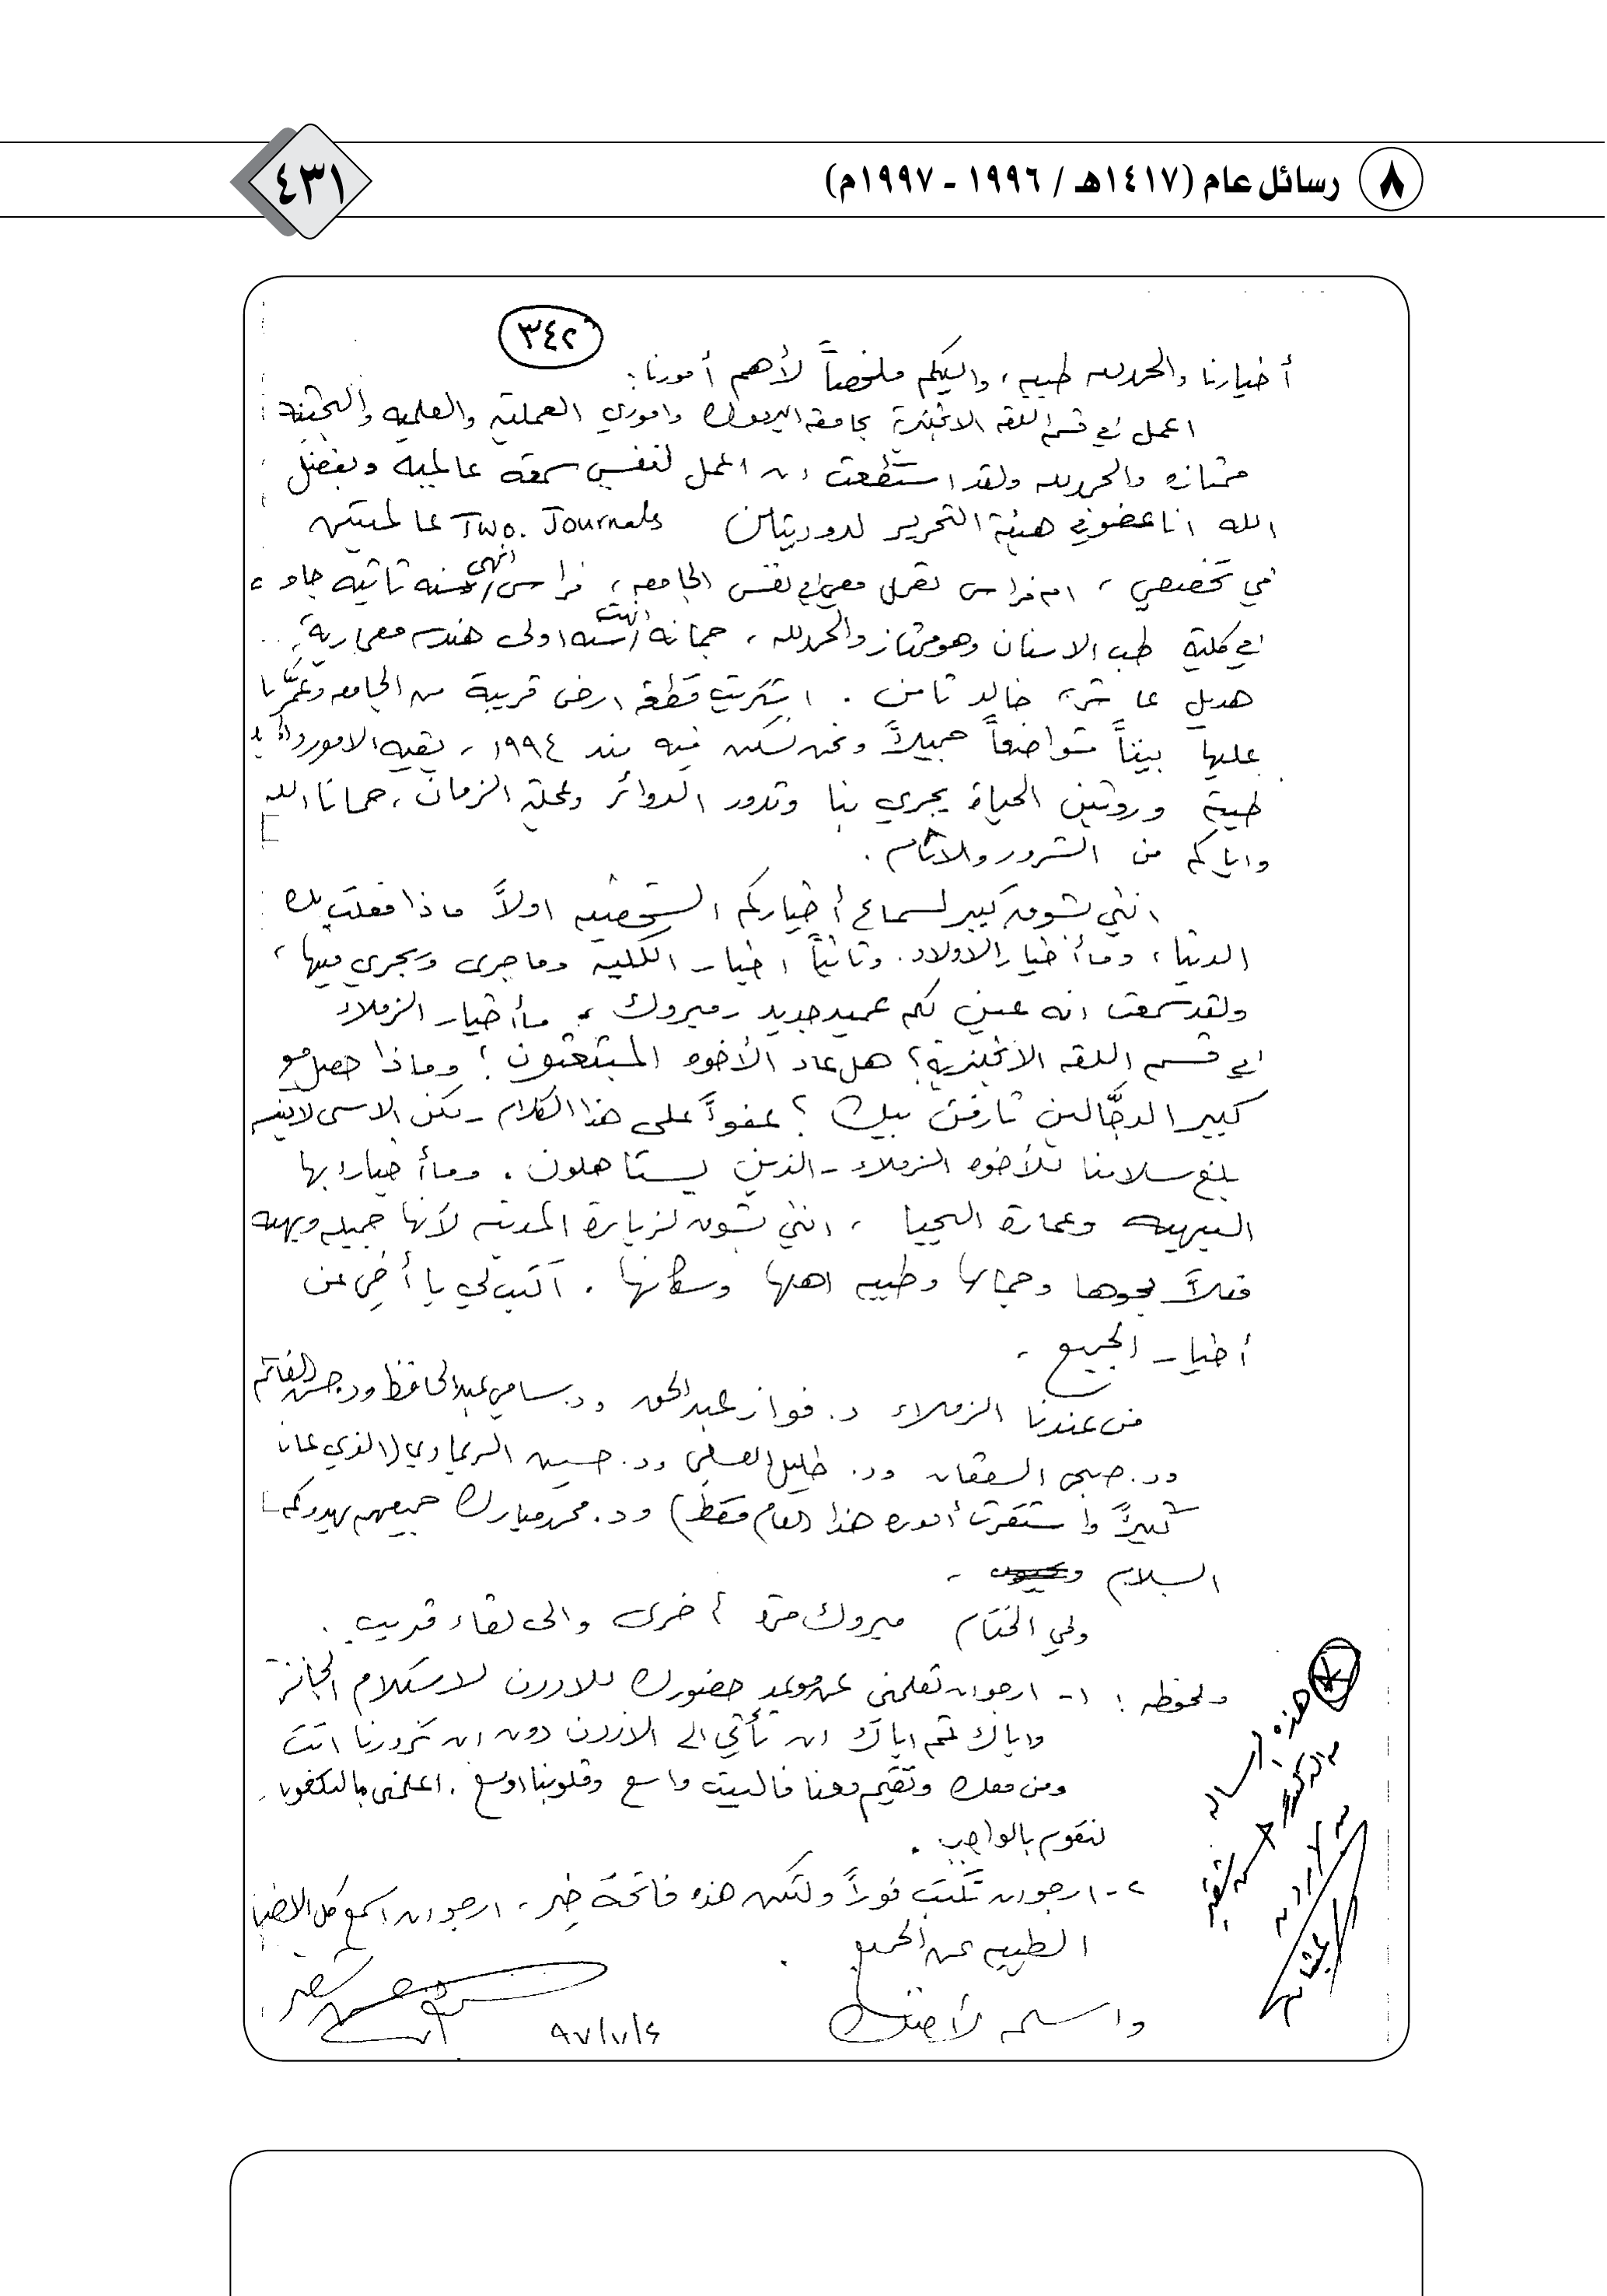 ٨ رسائل عام (١٤١٧هـ / ١٩٩٦ - ١٩٩٧م)
٤٣١
٣٤٢
أخبارنا والحمدلله طيبه، واليكم ملخصاً لأهم أمورنا:
اعمل في قسم اللغه الانجليزية بجامعة اليرموك واموري العملية والعلميه والبحثيه
ممتازه والحمدلله ولقد استطعت ان اعمل لنفسي سمعه عالميه وبفضل
الله انا عضو في هيئة التحرير لدوريتان Two. Journals عالميتين
في تخصصي، ام فراس تعمل معي في نفس الجامعه، فراس انهى سنه ثانيه
في كلية طب الاسنان وهو ممتاز والحمدلله، جمانه انهت سنه اولى هندسه معمارية،
هديل عاشر، خالد ثامن. اشتريت قطعة ارض قريبة من الجامعه وعمّرنا
عليها بيتاً متواضعاً جميلاً ونحن نسكن فيه منذ ١٩٩٤، بقيه الامور
طيبة وروتين الحياة يجري بنا وتدور الدوائر وعجلة الزمان، حمانا الله
واياكم من الشرور والاثام.
انني بشوق كبير لسماع أخباركم الشخصيه اولاً ماذا فعلت بك
الدنيا، وما أخبار الاولاد. وثانياً اخبار الكليه وما جرى ويجري فيها،
ولقد سمعت انه عين لكم عميد جديد - مبروك، ما أخبار الزملاء
في قسم اللغه الانجليزية؟ هل عاد الأخوه المبتعثون؟ وماذا حصل مع
كبير الدجّالين بيك؟ عفواً على هذا الكلام - لكن الاسى لا
بلغ سلامنا للأخوه الزملاء - الذين يستاهلون. وما أخبار ابها
البهيه وعمارة اليحيا، انني بشوق لزيارة المدينه لأنها جميله وبهيه
فعلاً بجوها وجمالها وطيبه اهلها وسكانها. اكتب لي يا أخي عن
أخبار الجميع،
من عندنا الزملاء د. فواز عبدالحق ود. سامي عبدالحافظ ود.
ود. صبحي ود. خليل ود. حسين الريماوي (الذي عانى
كثيراً واستقرت أموره هذا العام فقط) ود. محمد مبارك جميعهم يهدوكم
السلام
وفي الختام مبروك مرة أخرى والى لقاء قريب.
ملحوظه: ١- ارجو ان تعلمني عن موعد حضورك للاردن لاستلام الجائزة
واياك ثم اياك ان تأتي الى الاردن دون ان تزورنا انت
ومن معك وتقيم معنا فالبيت واسع وقلوبنا اوسع. اعلمني بالتلفون
لنقوم بالواجب.
٢- ارجو ان تكتب فوراً ولتكن هذه فاتحة خير، ارجو ان اسمع كل الاخبار
الطيبه عن الجميع
واسلم لأخيك
٩٧/٧/٤
هذه رسالة
من الدكتور